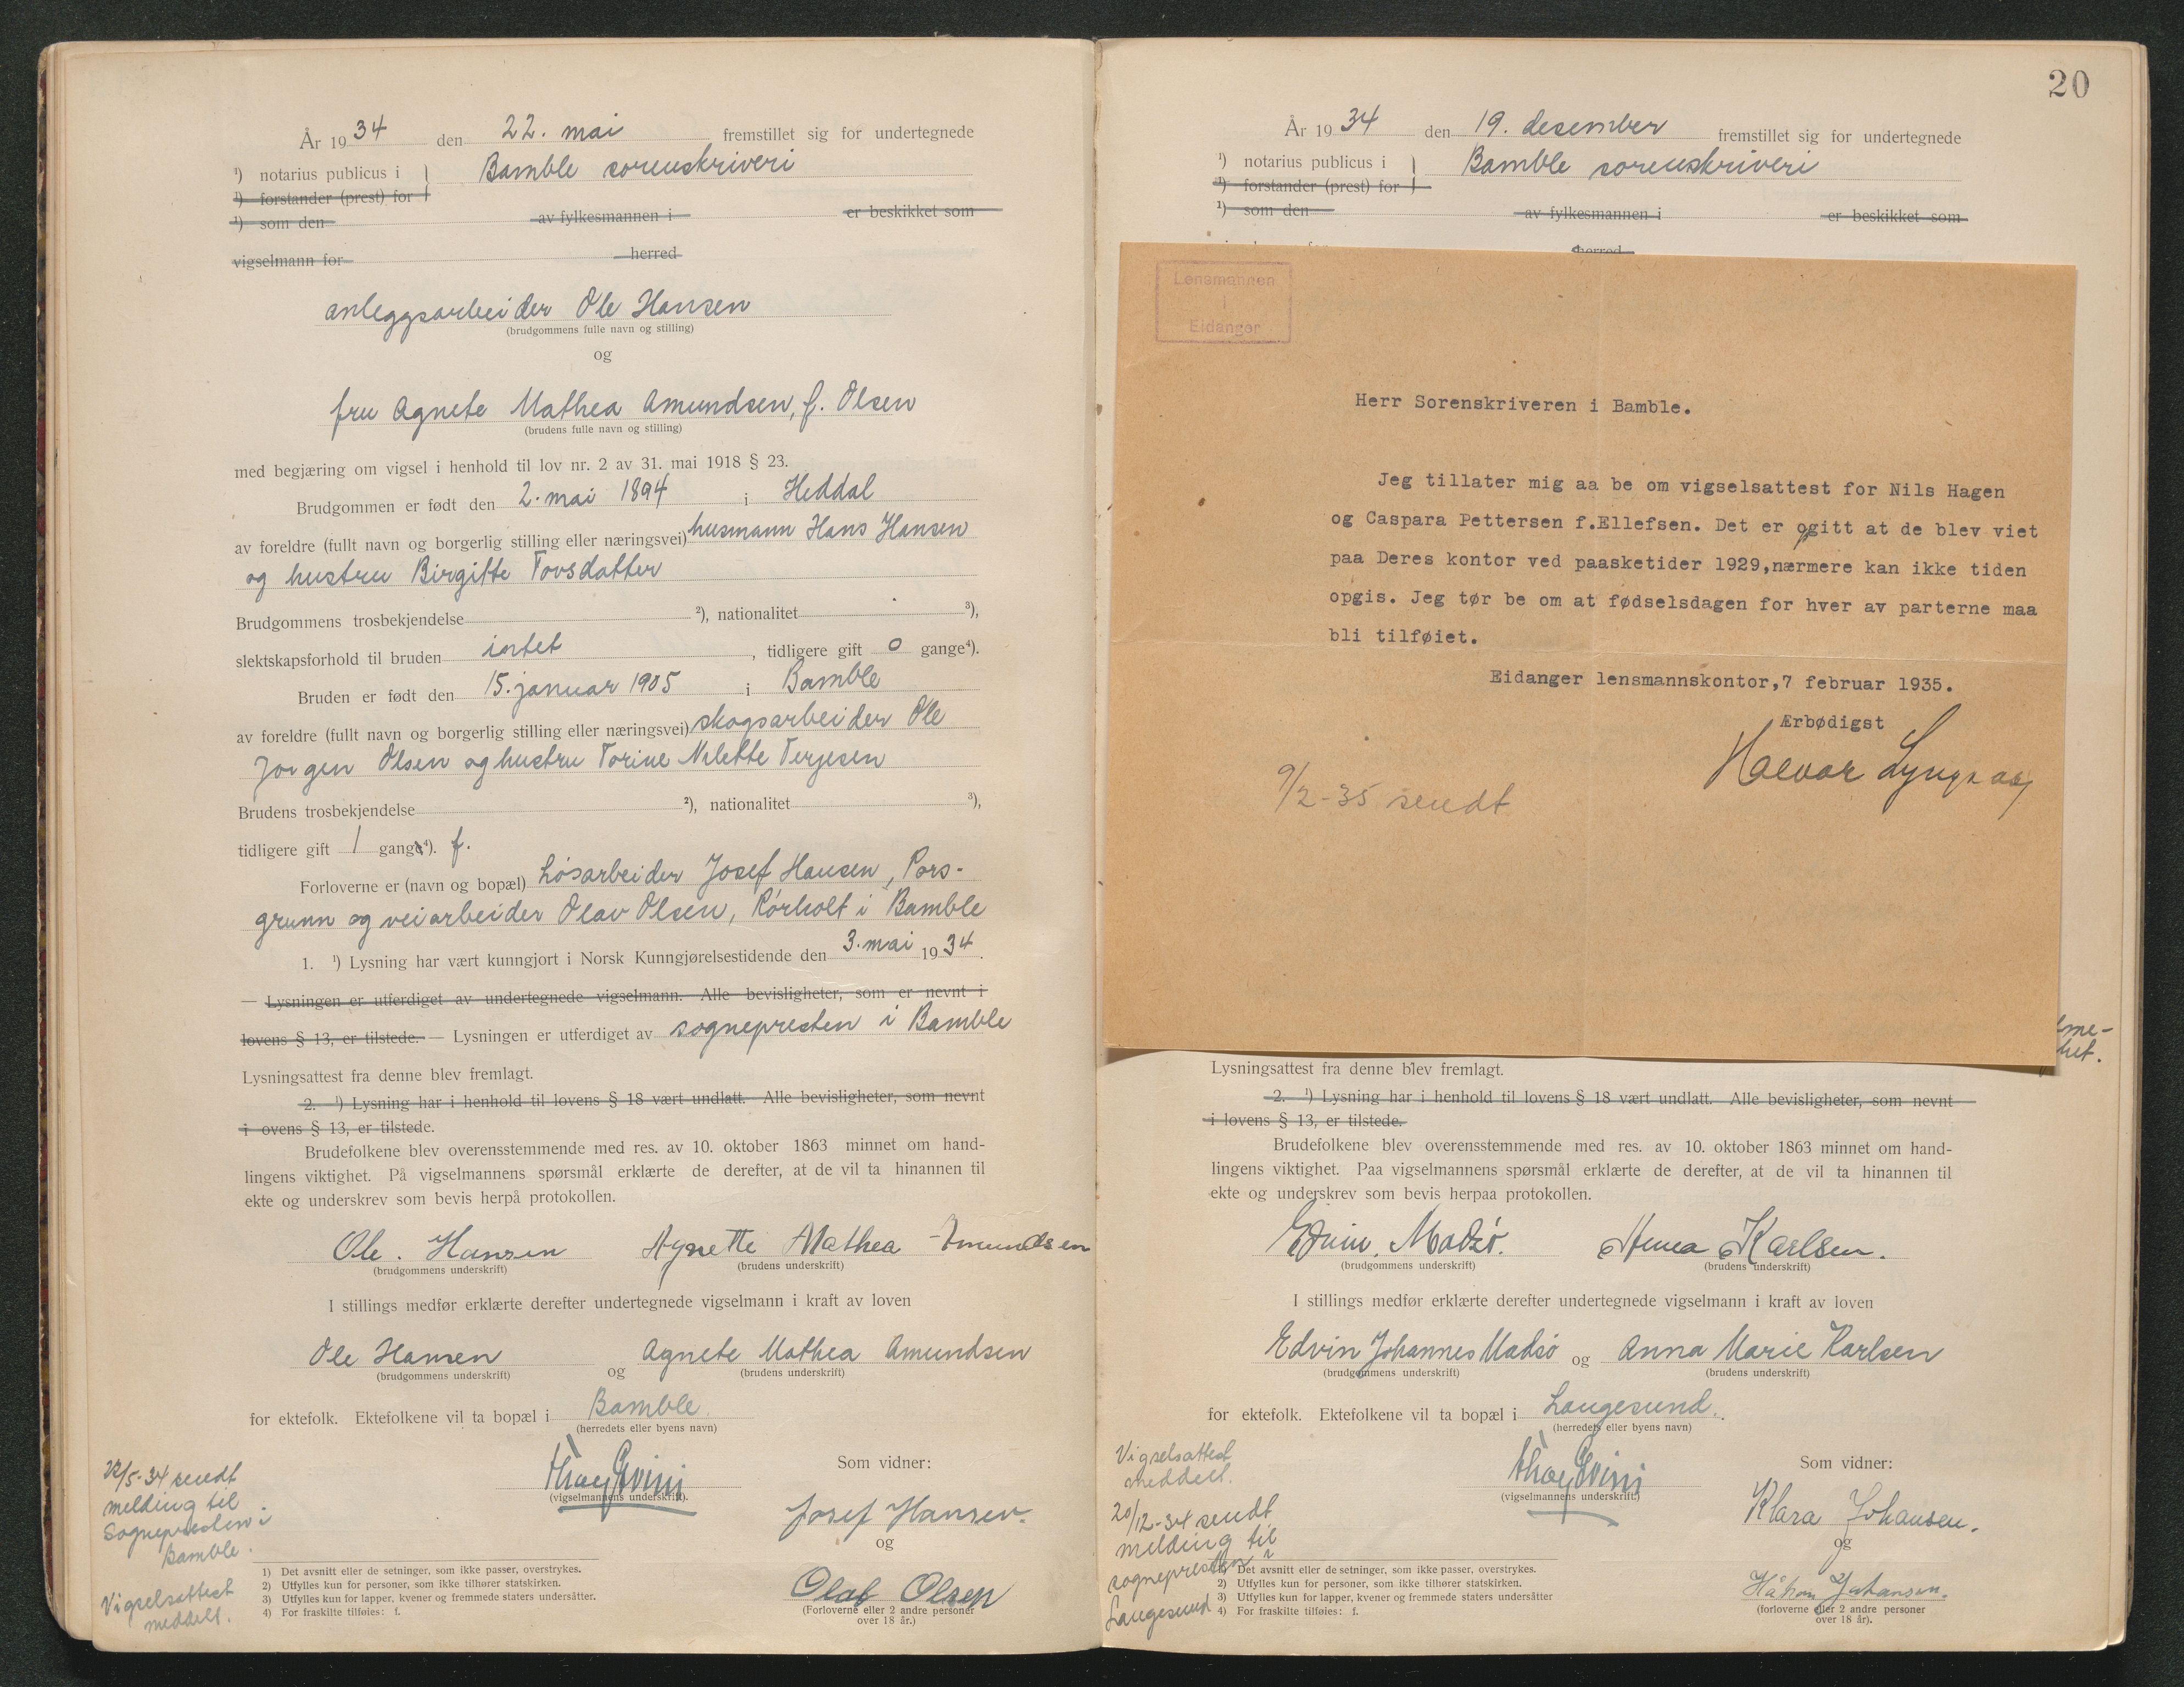 År 1934 den 22. mai fremstillet sig for undertegnede
¹) notarius publicus i Bamble sorenskriveri
¹) forstander (prest) for
¹) som den av fylkesmannen i er beskikket som
vigselmann for herred
anleggsarbeider Ole Hansen
(brudgommens fulle navn og stilling)
og
fru Agnete Mathea Amundsen, f. Olsen
(brudens fulle navn og stilling)
med begjæring om vigsel i henhold til lov nr. 2 av 31. mai 1918 § 23.
Brudgommen er født den 2. mai 1894 i Heddal
av foreldre (fullt navn og borgerlig stilling eller næringsvei) husmann Hans Hansen
og hustru Birgitte Tovsdatter
Brudgommens trosbekjendelse ²), nationalitet ³),
slektskapsforhold til bruden intet, tidligere gift 0 gange⁴).
Bruden er født den 15. januar 1905 i Bamble
av foreldre (fullt navn og borgerlig stilling eller næringsvei) skogsarbeider Ole
Jørgen Olsen og hustru Torine Nilette Terjesen
Brudens trosbekjendelse ²), nationalitet ³),
tidligere gift 1 gang⁴). f.
Forloverne er (navn og bopæl) Løsarbeider Josef Hansen, Pors-
grunn og veiarbeider Olav Olsen, Rørholt i Bamble
1. ¹) Lysning har vært kunngjort i Norsk Kunngjørelsestidende den 3. mai 1934.
— Lysningen er utferdiget av undertegnede vigselmann. Alle bevisligheter, som er nevnt i
lovens § 13, er tilstede. — Lysningen er utferdiget av sognepresten i Bamble
Lysningsattest fra denne blev fremlagt.
2. ¹) Lysning har i henhold til lovens § 18 vært undlatt. Alle bevisligheter, som nevnt
i ovens § 13, er tilstede.
Brudefolkene blev overensstemmende med res. av 10. oktober 1863 minnet om hand-
lingens viktighet. På vigselmannens spørsmål erklærte de derefter, at de vil ta hinannen til
ekte og underskrev som bevis herpå protokollen.
Ole. Hansen Agnette Mathea Amundsen
(brudgommens underskrift) (brudens underskrift)
I stillings medfør erklærte derefter undertegnede vigselmann i kraft av loven
Ole Hansen og Agnete Mathea Amundsen
(brudgommens underskrift) (brudens underskrift)
for ektefolk. Ektefolkene vil ta bopæl i Bamble
(herredets eller byens navn)
(vigselmannens underskrift).
Som vidner:
Josef Hansen.
og
Olaf Olsen
(Forloverne eller 2 andre personer
over 18 år.)
22/5-34 sendt
melding til
Sognepresten i
Bamble.
Vigselsattest
meddelt.
1) Det avsnitt eller de setninger, som ikke passer, overstrykes.
2) Utfylles kun for personer, som ikke tilhører statskirken.
3) Utfylles kun for lapper, kvener og fremmede staters undersåtter.
4) For fraskilte tilføies: f.
20
År 1934 den 19. desember fremstillet sig for undertegnede
¹) notarius publicus i Bamble sorenskriveri
¹) forstander (prest) for
¹) som den av fylkesmannen i er beskikket som
herred
Lensmannen
i
Eidanger
Herr Sorenskriveren i Bamble.
Jeg tillater mig aa be om vigselsattest for Nils Hagen
og Caspara Pettersen f.Ellefsen. Det er opgitt at de blev viet
paa Deres kontor ved paasketider 1929,nærmere kan ikke tiden
opgis. Jeg tør be om at fødselsdagen for hver av parterne maa
bli tilføiet.
Eidanger lensmannskontor,7 februar 1935.
Ærbødigst
Halvor
9/2-35 sendt
Lysningsattest fra denne blev fremlagt.
2. ¹) Lysning har i henhold til lovens § 18 vært undlatt. Alle bevisligheter, som nevnt
i lovens § 13, er tilstede.
Brudefolkene blev overensstemmende med res. av 10. oktober 1863 minnet om hand-
lingens viktighet. Paa vigselmannens spørsmål erklærte de derefter, at de vil ta hinannen til
ekte og underskrev som bevis herpaa protokollen.
Edvin. Madsø. Anna Karlsen.
(brudgommens underskrift) (brudens underskrift)
I stillings medfør erklærte derefter undertegnede vigselmann i kraft av loven
Edvin Johannes Madsø og Anna Marie Karlsen
(brudgommens underskrift) (brudens underskrift)
for ektefolk. Ektefolkene vil ta bopæl i Langesund.
(herredets eller byens navn)
(vigselmannens underskrift.)
Som vidner:
Klara Johansen.
og
Håkon Johansen.
(forloverne eller 2 andre personer
over 18 år).
Vigselsattest
meddelt.
20/12-34 sendt
melding til
sognepresten i
Langesund
1) Det avsnitt eller de setninger, som ikke passer, overstrykes.
2) Utfylles kun for personer, som ikke tilhører statskirken.
3) Utfylles kun for lapper, kvener og fremmede staters undersåtter
4) For fraskilte tilføies: f.